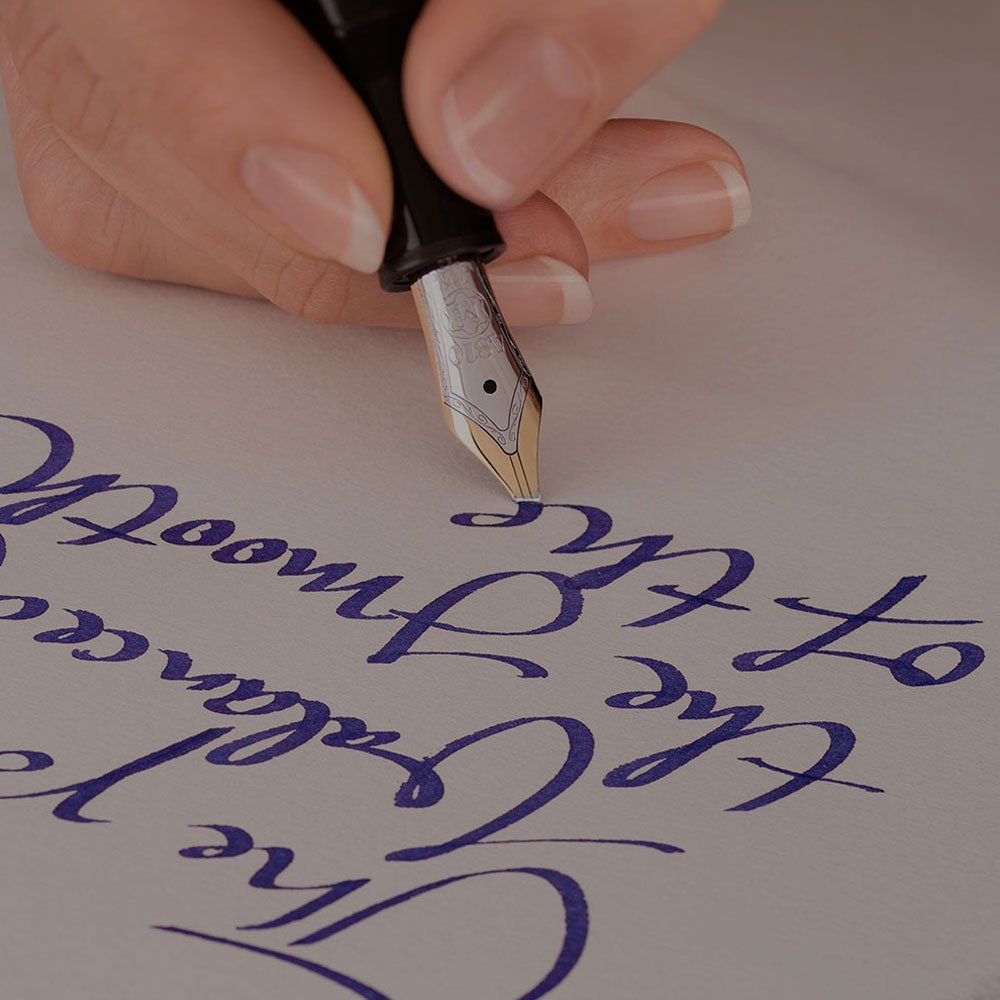 The
Balance
the Smooth
of the